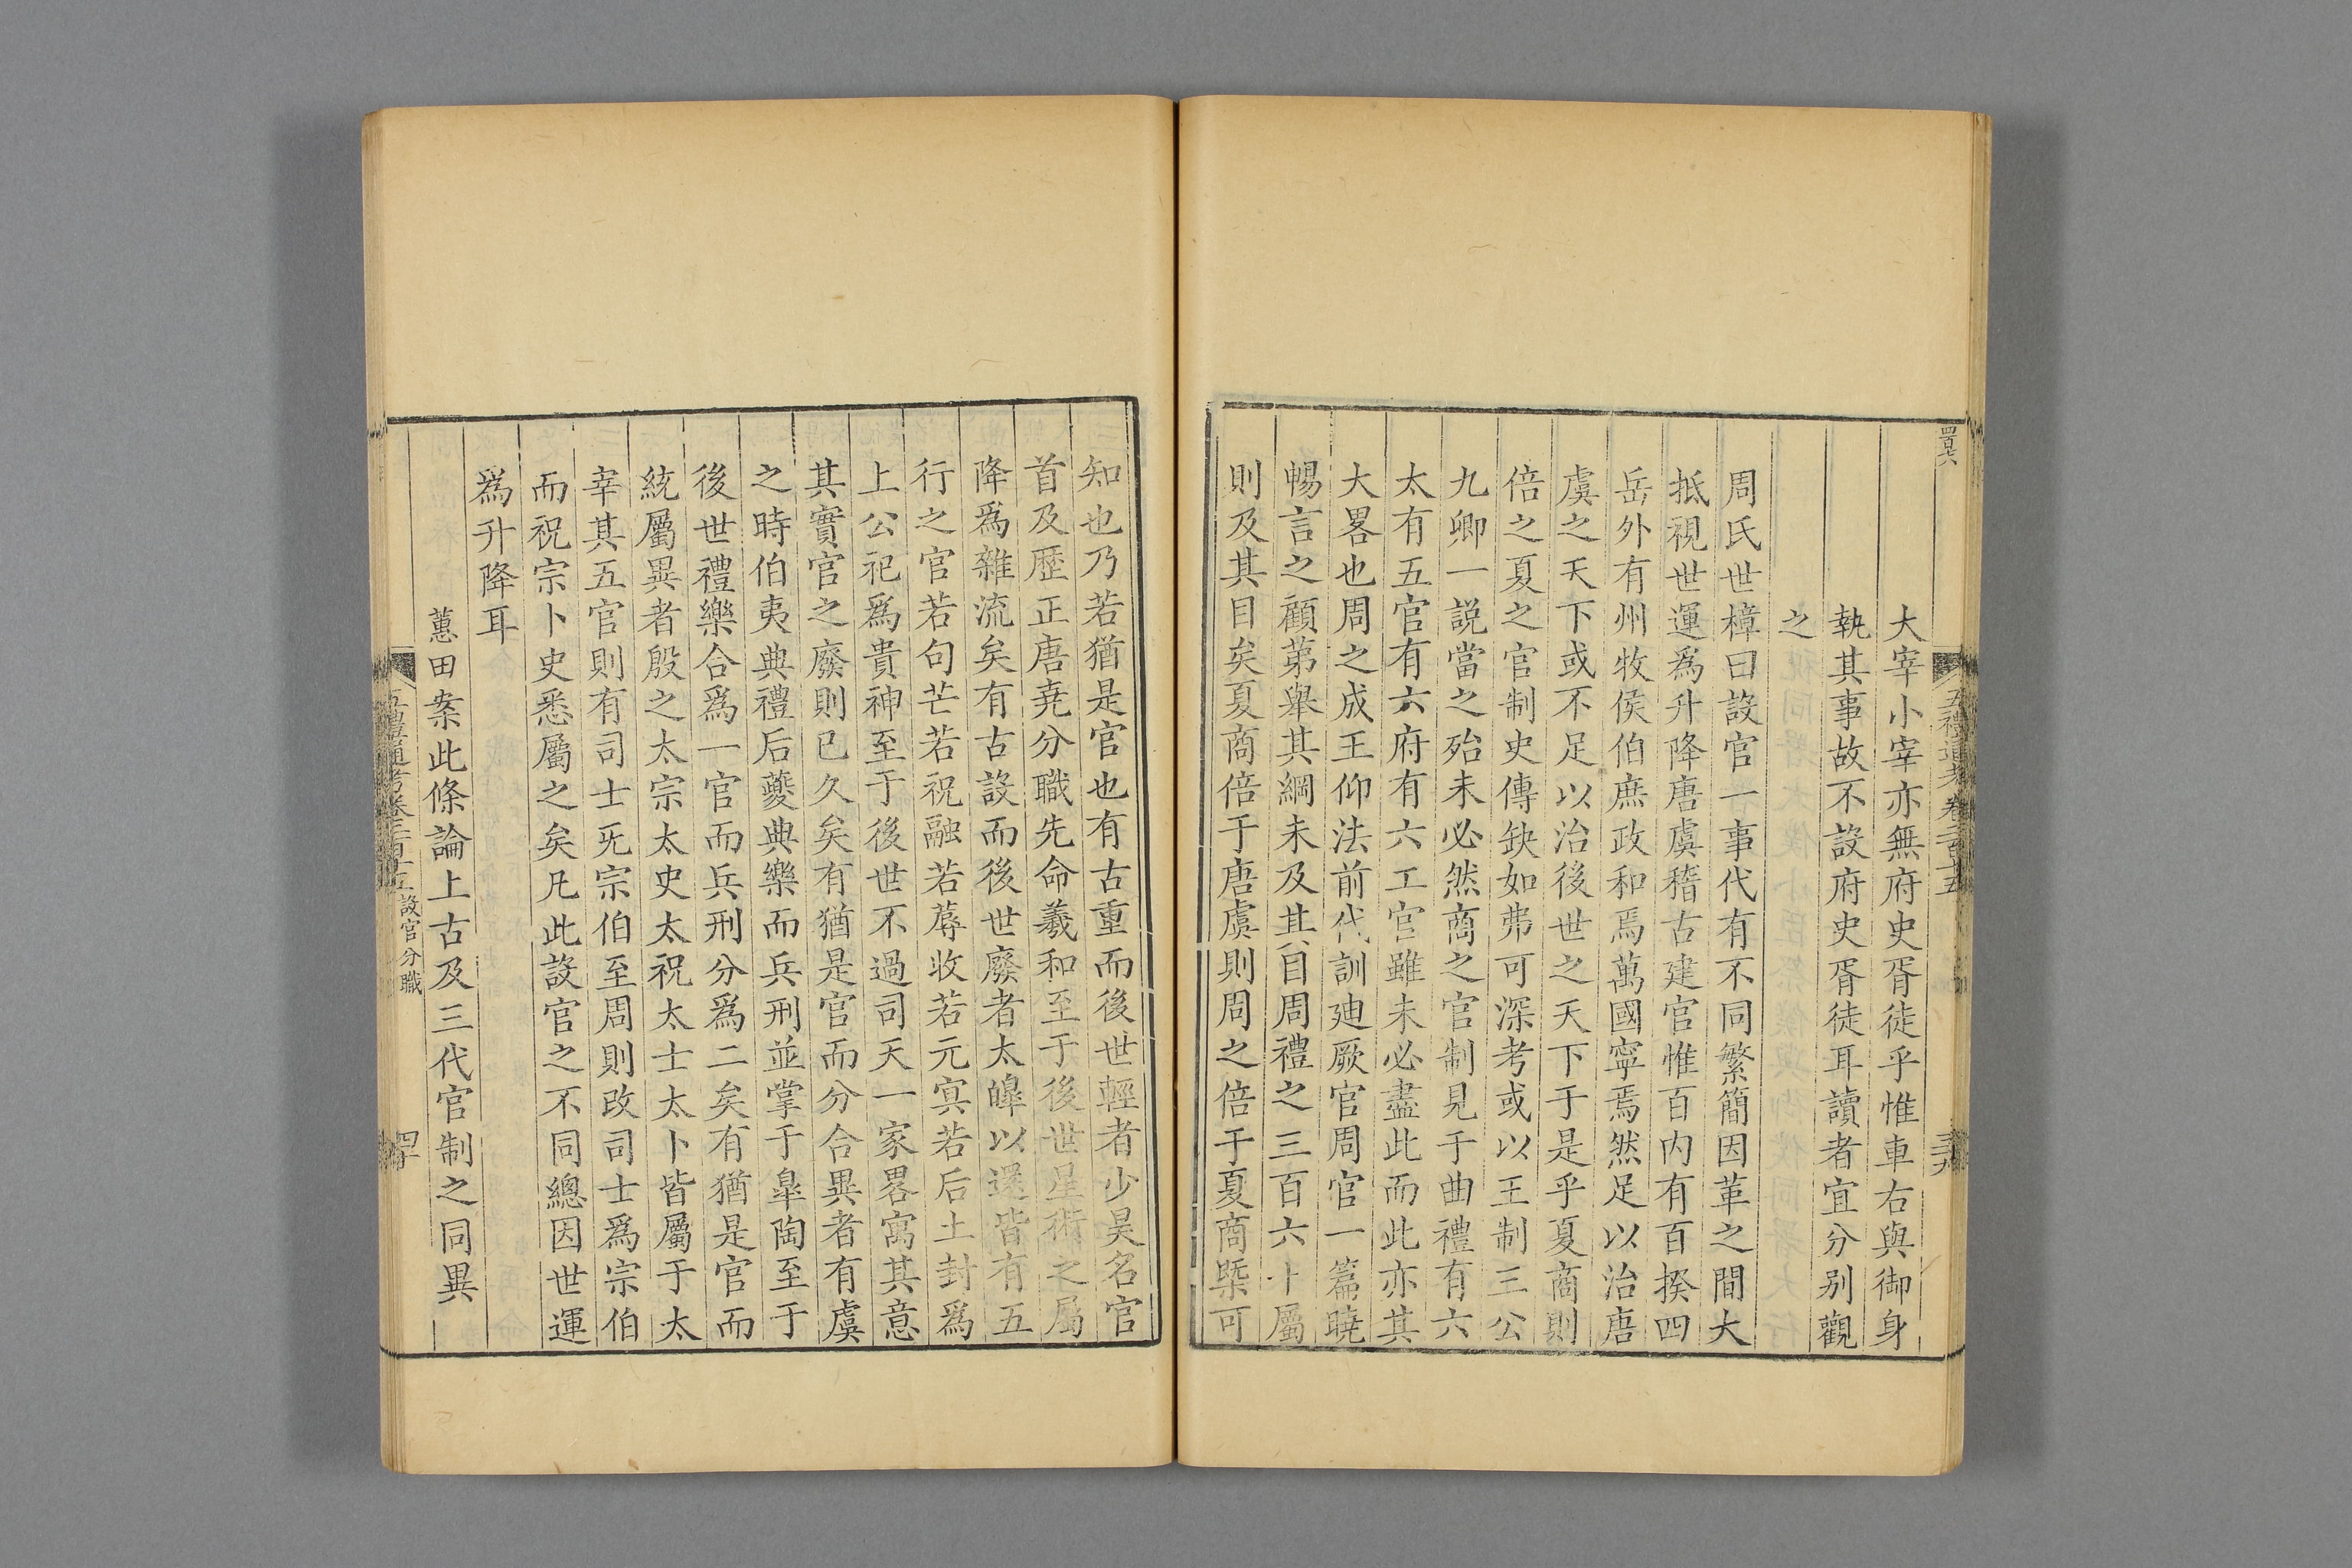 大宰小宰亦無府史胥徒乎惟車右與御身
執其事故不設府史胥徒耳讀者宜分别觀
之
周氏世樟曰設官一事代有不同繁簡因革之間大
抵視世運爲升降唐虞稽古建官惟百内有百揆四
岳外有州牧侯伯庶政和焉萬國寧焉然足以治唐
虞之天下或不足以治後世之天下于是乎夏商則
倍之夏之官制史傳缺如弗可深考或以王制三公
九卿一説當之殆未必然商之官制見于曲禮有六
太有五官有六府有六工官雖未必盡此而此亦其
大畧也周之成王仰法前代訓廸厥官周官一篇曉
暢言之顧第舉其綱未及其目周禮之三百六十屬
則及其目矣夏商倍于唐虞則周之倍于夏商槩可
知也乃若猶是官也有古重而後世輕者少昊名官
首及歴正唐堯分職先命羲和至于後世星術之屬
降爲雜流矣有古設而後世廢者太皥以還皆有五
行之官若句芒若祝融若蓐收若元冥若后土封爲
上公祀爲貴神至于後世不過司天一家畧寓其意
其實官之廢則已久矣有猶是官而分合異者有虞
之時伯夷典禮后夔典樂而兵刑並掌于臯陶至于
後世禮樂合爲一官而兵刑分爲二矣有猶是官而
統屬異者殷之太宗太史太祝太士太卜皆屬于太
宰其五官則有司士旡宗伯至周則改司士爲宗伯
而祝宗卜史悉屬之矣凡此設官之不同總因世運
爲升降耳
蕙田案此條論上古及三代官制之同異
五禮通考卷二百十五 設官分職
四十